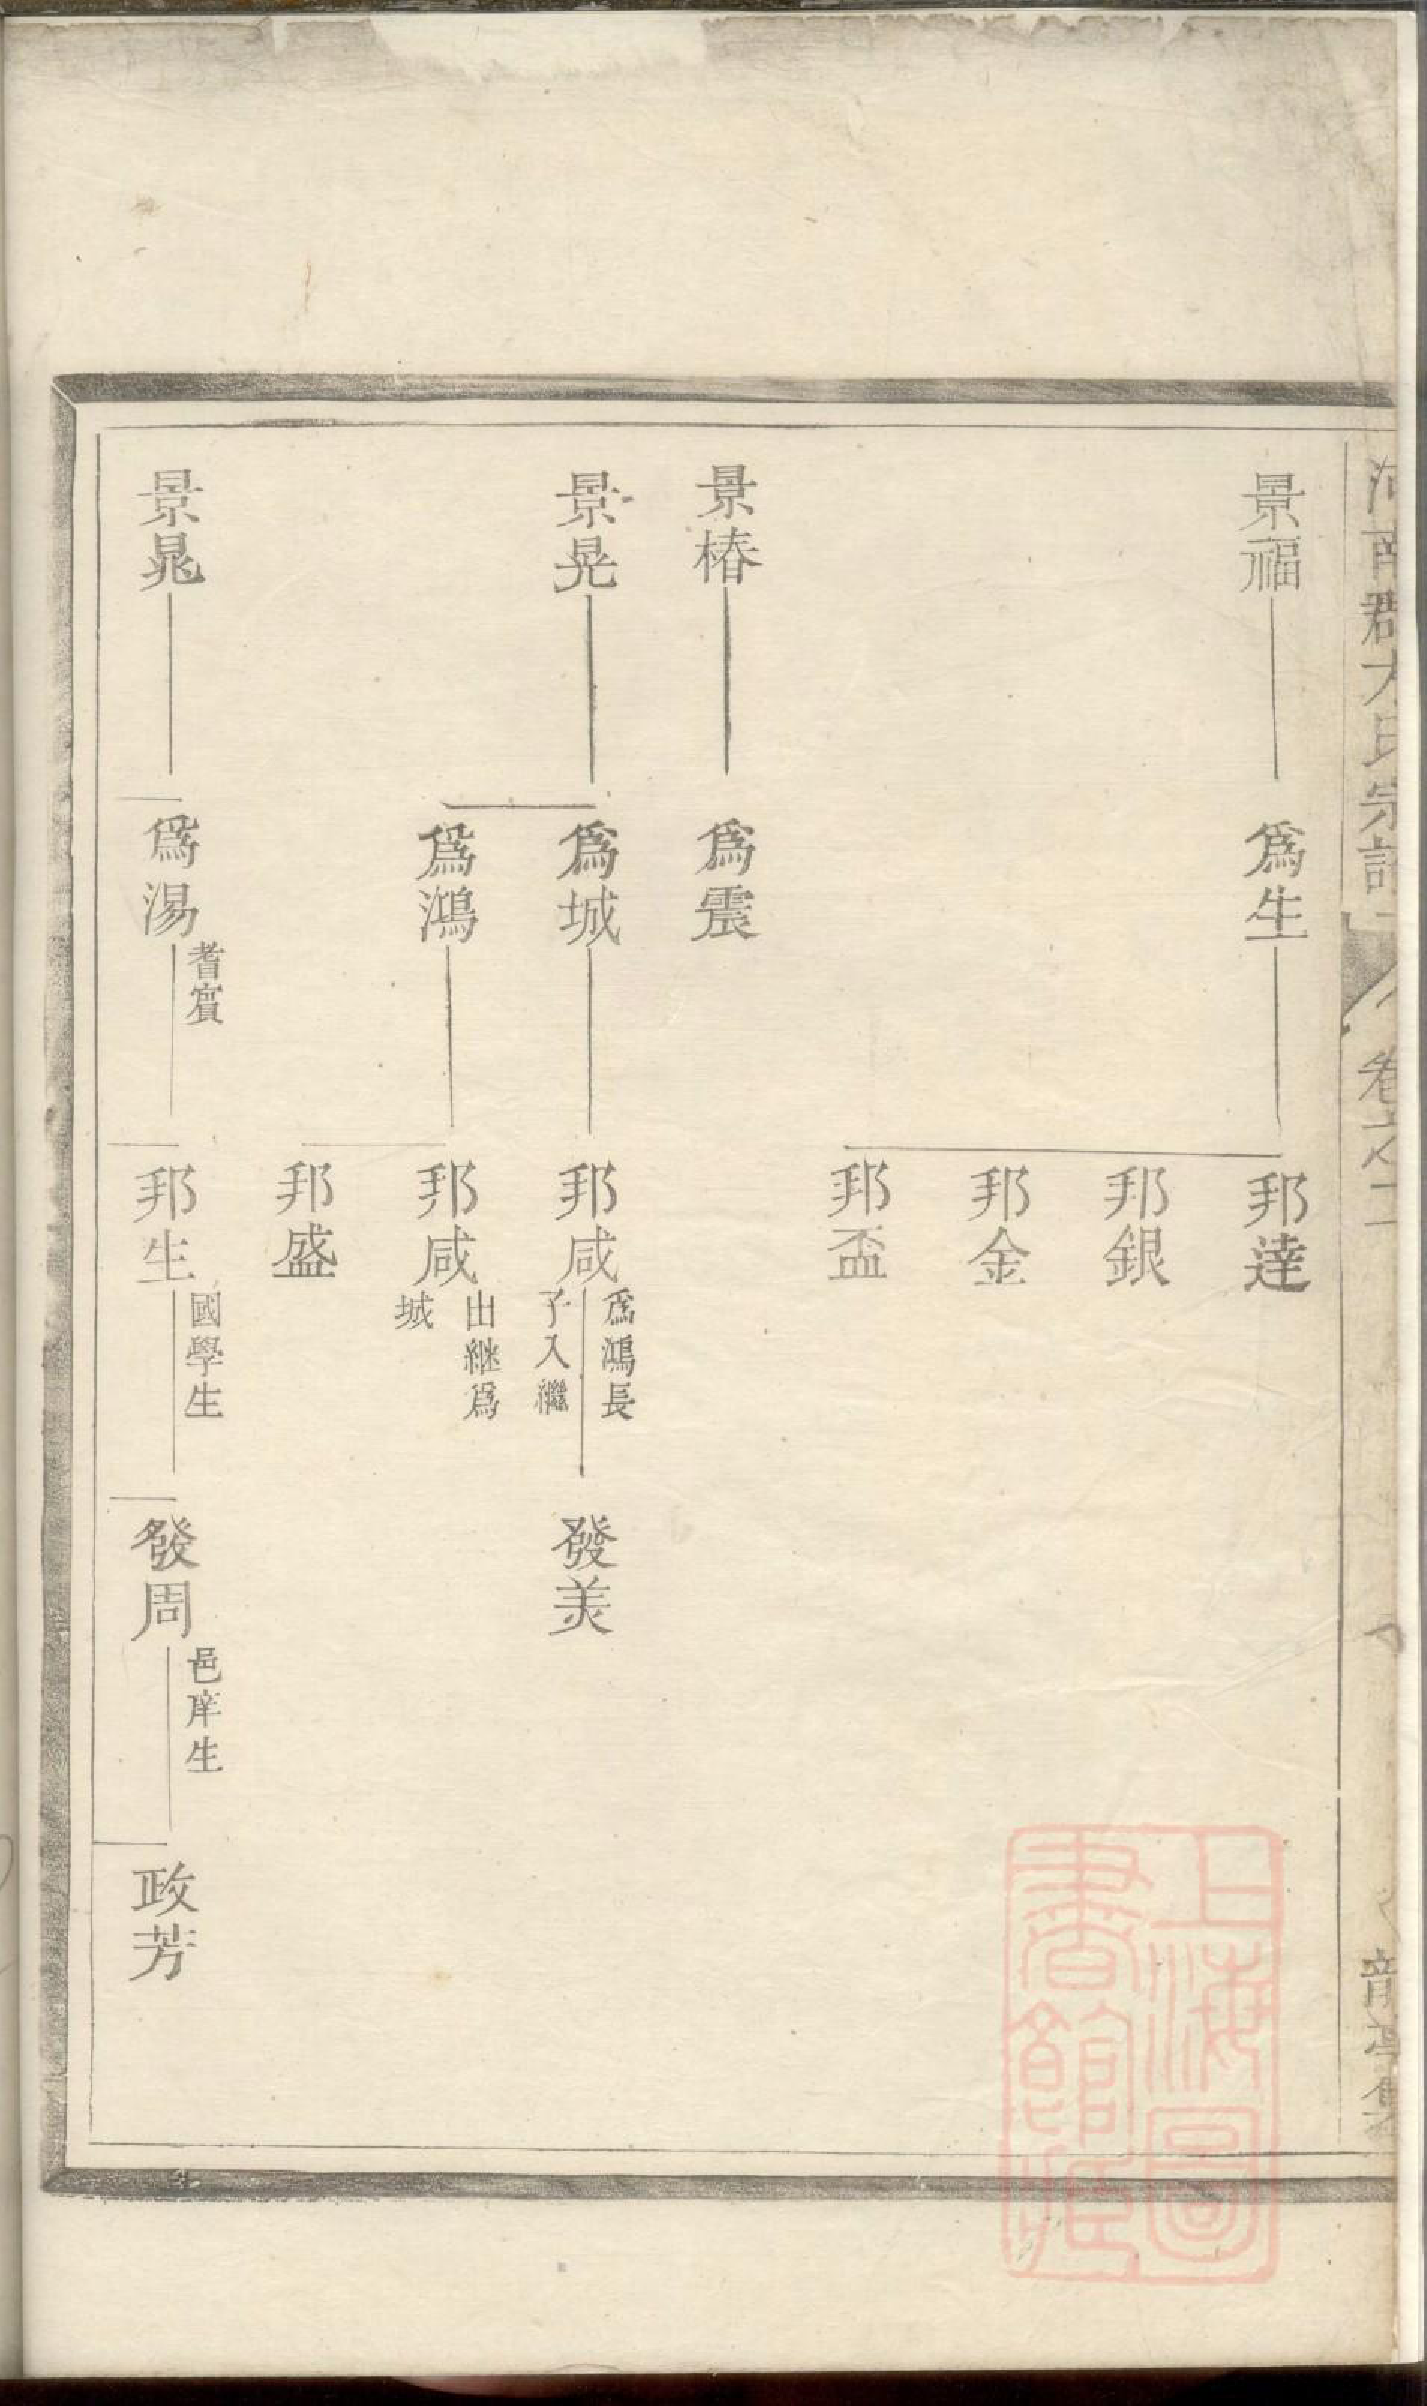 河南郡方氏宗譜
卷之二
龍亭集
景福
爲生
邦達
邦銀
邦金
邦盃
景椿
爲震
景晃
爲城
邦咸
爲鴻長
子入繼
發美
爲鴻
邦咸
出継爲
城
邦盛
景晁
爲湯
耆賓
邦生
國學生
發周
邑庠生
政芳
上海圖
書館藏